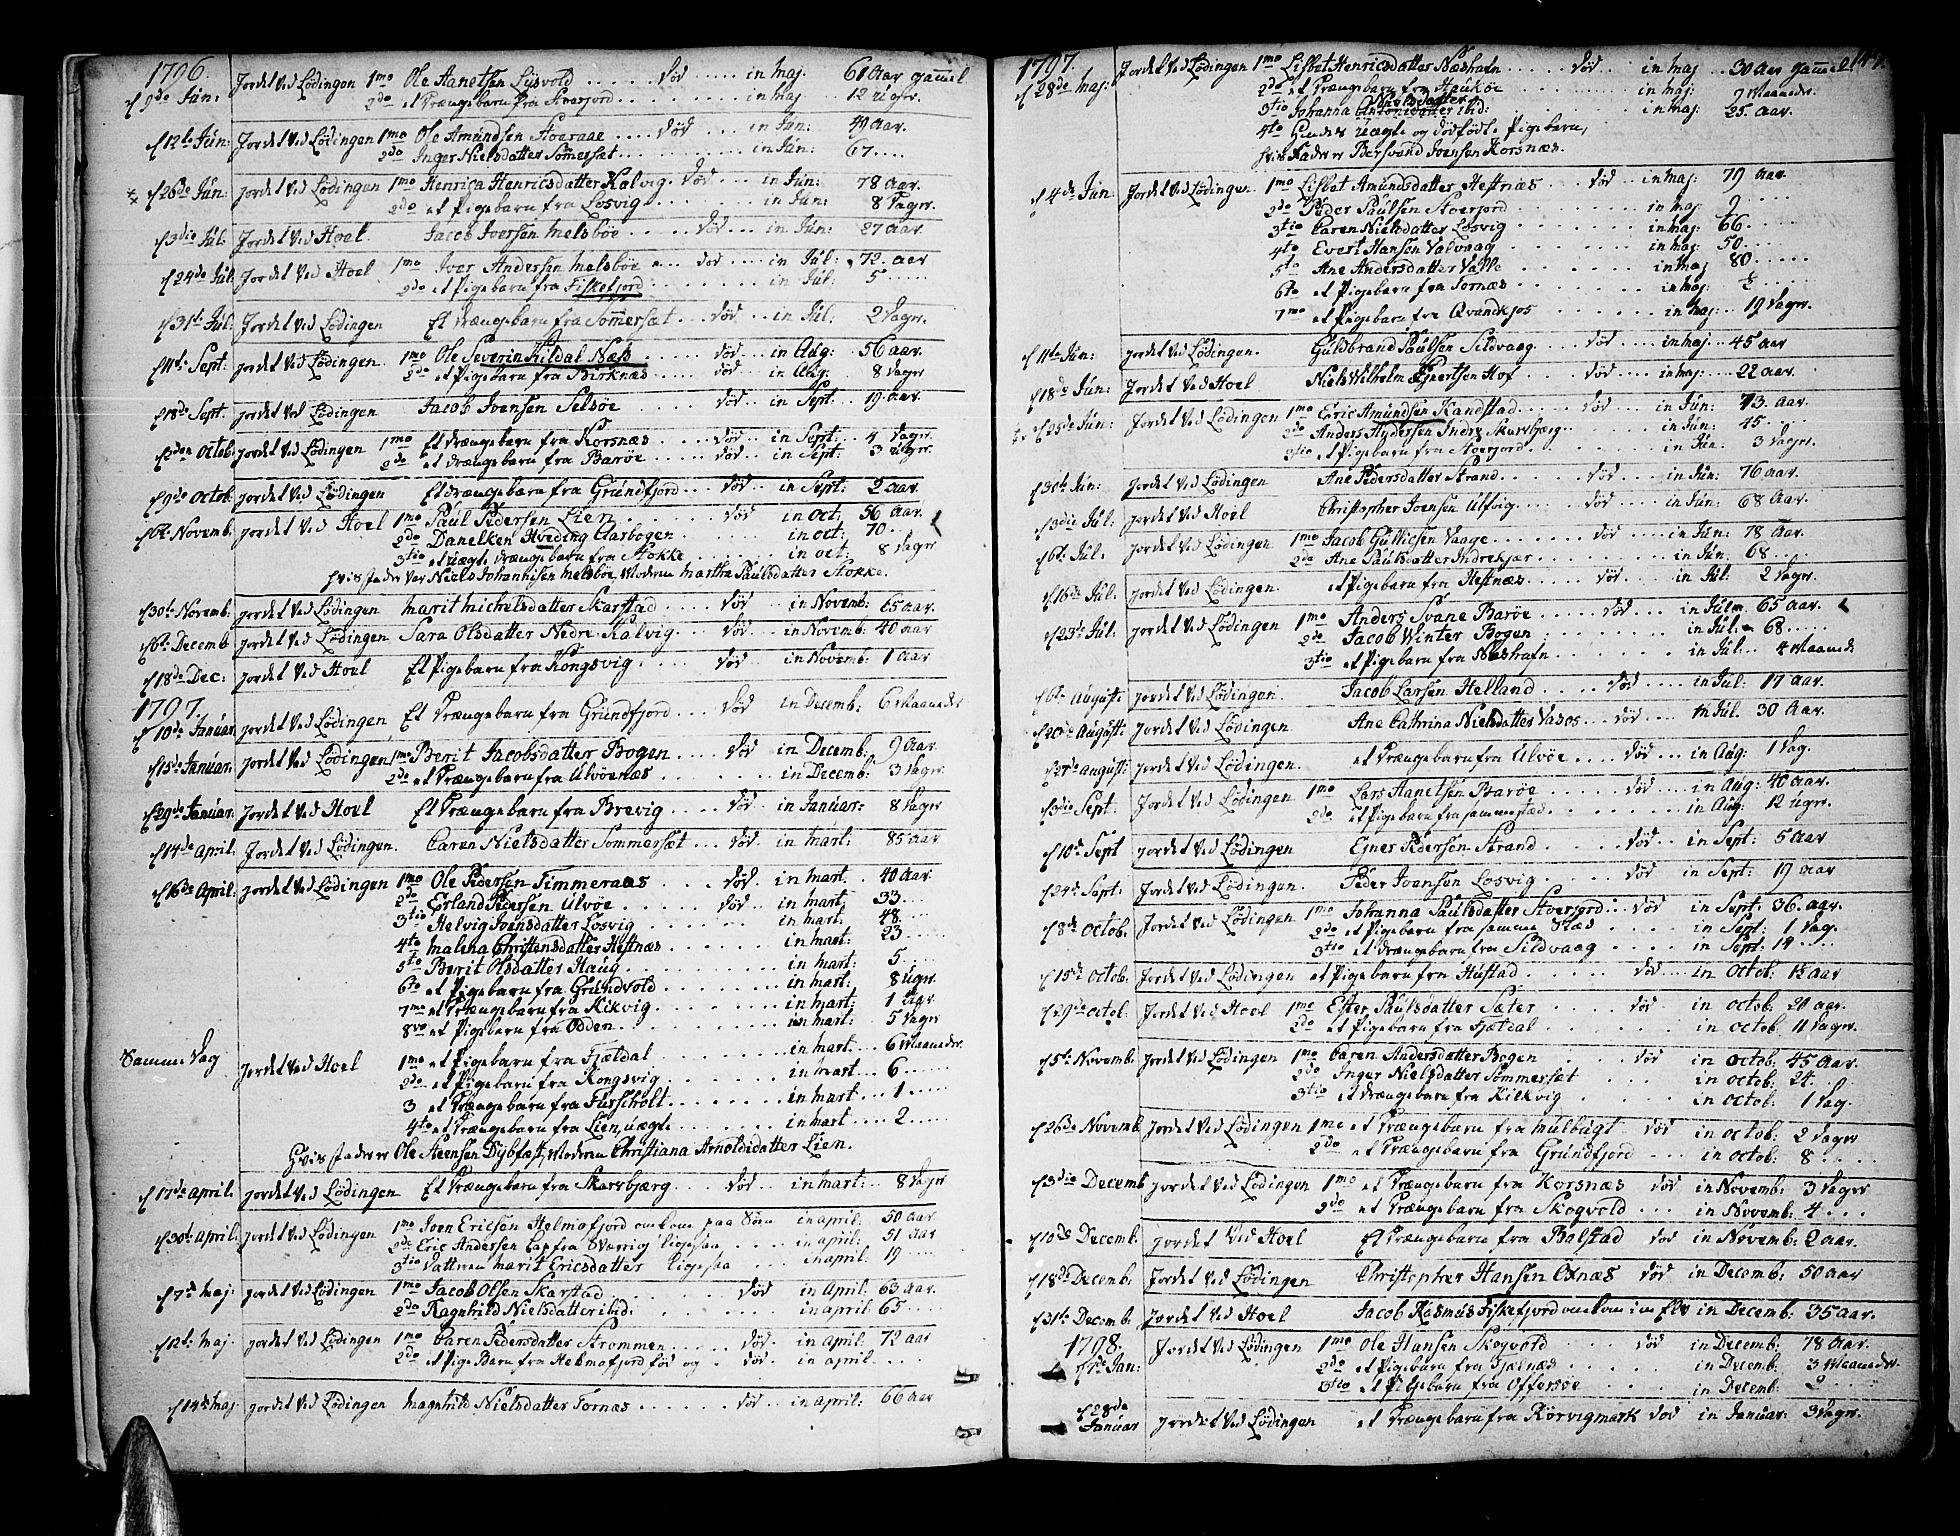 1796.
d 9de Jún: Jordet ved Lødingen 1mo Ole Aanetsen Lysvold død in maj. 61 Aar gamel
2do et Drængebarn fra Stoerfjord in maj 12 úger.
d 12te Jún: Jordet ved Lødingen 1mo Ole Amúndsen Stoeraae død in Jún: 49 Aar.
2do Inger Nielsdatter Sømersæt in Jún: 67
d 26de Jún: Jordet ved Lødingen 1mo Henrica Henricsdatter Kalvig død in Jún: 78 Aar.
2do et Pigebarn fra Løsvig in Jún: 8 Dager.
d 3dio Júl: Jordet ved Hoel Jacob Iversen Melsbøe død in Jún: 27 Aar.
d 24de Júl: Jordet ved Hoel 1mo Iver Andersen Melsbøe død in Júl: 72. Aar
2do et Pigebarn fra Fiskefjord in Júl: 5
d 31te Júl: Jordet ved Lødingen Et Drængebarn fra Sommersæt død in Júl: 2 Dager.
d 11te Sept: Jordet ved Lødingen 1mo Ole Severin Kildal Næss død in Aúg: 56 Aar.
2do et Pigebarn fra Birknæs død in Aúg: 8 Dager
d 18de Sept. Jordet ved Lødingen Jacob Joensen Selsøe død in Sept. 19 Aar.
d 2den Octob: Jordet ved Lødingen 1mo Et Drængebarn fra Korsnæs død in Sept: 4 Dager.
2do et Drængebarn fra Barøe død in Sept: 3 úger.
d 9de Octob: Jordet ved Lødingen Et Drængebarn fra Grúndfjord død in Sept: 2 Aar.
d 6te Novemb. Jordet ved Hoel 1mo Paúl Pedersen Lien død in Oct: 56 Aar.
2do Danelken Hveding Aarbogen in oct: 70
3tio et úægte Drængebarn fra Stokke in oct: 8 Dager
hvis fader var Niels Johannisen Melsbøe, Moderen Martha Paúlsdatter Stokke.
d 30te Novemb. Jordet ved Lødingen Marit Michelsdatter Skarstad død in Novemb: 65 Aar.
d 6te Decemb Jordet ved Lødingen Sara Olsdatter Nedre Kalvig død in Novemb: 40 Aar
d 18de Dec: Jordet ved Hoel Et Pigebarn fra Kongsvig død in Novemb: 1 Aar
1797.
d 10de Janúar. Jordet ved Lødingen Et Drængebarn fra Grúndfjord død in Decemb: 6 Maaneder
d 15de Janúar. Jordet ved Lødingen 1mo Berit Jacobsdatter Bogen død in Decemb. 9 Aar.
2do et Drængebarn fra Úlvøenæs in Decemb: 3 Dager.
d 29de Janúar. Jordet ved Hoel Et Drængebarn fra Brevig død in Janúar: 8 Dager
d 14de April. Jordet ved Lødingen. Caren Nielsdatter Sommersæt død in Mart: 85 Aar.
d 16de April. Jordet ved Lødingen 1mo Ole Pedersen Timmeraas død in Mart. 40 Aar.
2do Erland Pedersen Úlvøe død in mart 33
3tio Helvig Joensdatter Løsvig in mart: 48
4to Malena Christensdatter Hestnæs in mart: 23
5to Berit Olsdatter Haúg in mart: 5
6to et Pigebarn fra Grúndvold in mart: 8 úger.
7mo et Drængebarn fra Kikvig in mart: 1 Aar.
8vo et Pigebarn fra Odden in mart: 5 Dager
Samme Dag Jordet ved Hoel 1mo et Pigebarn fra Fjældal in mart 6 Maaneder.
2do et Pigebarn fra Kongsvig in mart 6
3 et Drængebarn fra Fúrscholt in mart 1
4to et Drængebarn fra Lien, úægte in mart 2
Hvis fader er Ole Steensen Dybfæst, Moderen Christiana Arnoldsdatter Lien.
d 17de April. Jordet ved Lødingen Et Drængebarn fra Skarsbjærg død in mart: 8 Dager
d 30te April. Jordet ved Lødingen 1mo Joen Ericsen Helmofjord omkom paa Søen in April 50 Aar.
2do Eric Andersen Lap fra Sverrig ligesaa in April: 51 Aar
3tio Dattren Marit Ericsdatter ligesaa in April 19
d 7de Maj: Jordet ved Lødingen 1mo Jacob Olsen Skarstad død in April: 63 Aar
2do Ragnhild Nielsdatter ibid: in april: 65
d 12te Maj. Jordet ved Lødingen 1mo Caren Pedersdatter Strømmen død in april: 72 Aar
2do et Pige Barn fra Helmofjord fød og død in april.
d 14de Maj Jordet ved Lødingen Magnhild Nielsdatter Tornæs død in april: 66 Aar
1797.
d 28de Maj: Jordet ved Lødingen 1mo Lisbet Henricsdatter Næshafn død in maj 30 Aar gamel 147.
2do et Drængebarn fra Haúkøe in maj: 9 Maaneder.
3tio Johanna ibid: in maj: 25. Aar.
4to Hendes úægte og dødfødte Pigebarn,
hvis Fader er Bersvend Joensen Korsnæs.
d 4de Jún: Jordet ved Lødingen 1mo Lisbet Amúndsdatter Hestnæs død in maj: 79 Aar
2do Peder Paúlsen Stoerfjord in maj 9
3tio Caren Nielsdatter Løsvig in maj: 66
4to Evert Hansen Valvaag in maj: 50
5to Ane Andersdatter Valle in maj 80
6to et Pigebarn fra Tornæs in maj: ½
7mo et Pigebarn fra Qvandkjos in maj: 19 Dager
d 11te Jún: Jordet ved Lødingen. Gúldbrand Paúlsen Sildvaag død in maj: 45 Aar
d 18de Jún: Jordet ved Hoel Niels Wilhelm Ejnertsen Hof død in maj: 22 Aar.
d 25de Jún: Jordet ved Lødingen 1mo Eric Amúndsen Kandstad død in Jún: 73. Aar.
2do Anders Andersen Indre Skarsbjærg in Jún: 45
3tio et Pigebarn fra Stoerfjord in Jún: 3 Dager.
d 30te Jún: Jordet ved Lødingen Ane Pedersdatter Strand død in Jún: 76 Aar.
d 3die Júl: Jordet ved Hoel Christopher Joensen Úlfvig død in Jún: 68 Aar.
d 16te Júl. Jordet ved Lødingen 1mo Jacob Gúllicsen Vaage død in Jún: 78 Aar.
2do Ane Paúlsdatter Indrekjær in Jún. 68
d 16de Júl. Jordet ved Lødingen. et Pigebarn fra Hestnæs død in Júl: 2 Dager.
d 23de Júl. Jordet ved Lødingen 1mo Anders Svane Barøe død in Júl 65 Aar.
2do Jacob Winter Bogen in Júl. 68
3tio et Pigebarn fra Næshafn in Júl. 4 Maaneder
d 6te Aúgústi Jordet ved Lødingen Jacob Larsen Helland død in Júl: 17 Aar.
d 20de Aúgústi Jordet ved Lødingen Ane Cathrina Nielsdatter Vasos død in Júl. 30 Aar.
d 27de Aúgústi Jordet ved Lødingen. et Drængebarn fra Úlvøe død in Aúg: 1 Dag.
d 3die Sept. Jordet ved Lødingen 1mo Lars Aanetsen Barøe in Aúg: 40 Aar.
2do et Pigebarn fra sammestæd in Aúg: 12 úger.
d 10de Sept Jordet ved Lødingen Ejner Pedersen Strand død in Sept: 5 Aar
d 24de Sept: Jordet ved Lødingen. Peder Joensen Løsvig død in Sept: 19 Aar
d 8de Octob. Jordet ved Lødingen 1mo Johanna Paúlsdatter Stoerfjord død in Sept. 36. Aar.
2do et Pigebarn fra samme Stæd in Sept: 1 Dag.
3tio et Drængebarn fra Sildvaag in Sept: 14
d 15de Octob: Jordet ved Lødingen et Pigebarn fra Hústad død in Octob: 15 Aar
d 29de Octob: Jordet ved Hoel 1mo Ester Paúlsdatter Sæter død in octob: 20 Aar.
2do et Pigebarn fra Fjældal in octob: 11 Dager.
d 5te Novemb. Jordet ved Lødingen 1mo Caren Andersdatter Bogen død in octob: 45 Aar.
2do Inger Nielsdatter Sømmersæt in octob: 24.
3tio et Drængebarn fra Kilkvig in octob: 1 Dag.
d 26de Novemb Jordet ved Lødingen 1mo et Drængebarn fra Múlbúgt død in octob: 2 Dager
2do et Drængebarn fra Grúndfjord in octob: 8
d 3die Decemb Jordet ved Lødingen 1mo et Drængebarn fra Korsnæs død in Novemb: 3 Dager
2do et Drængebarn fra Skogvold in Novemb: 4
d 10de Decemb. Jordet ved Hoel Et Drængebarn fra Balstad død in Novemb: 2 Aar.
d 18de Decemb: Jordet ved Lødingen Christopher Hansen Oxnæs død in Decemb: 50 Aar
d 31te Decemb: Jordet ved Hoel Jacob Rasmús Fiskefjord omkom i en Elv in Decemb: 35 Aar.
1798.
d 7de Jan: Jordet ved Lødingen 1mo Ole Hansen Skogvold død in Decemb: 78 Aar.
2do et Pigebarn fra Fjælnæs in Decemb: 3 Maaneder.
3tio et Pigebarn fra Offersøe in Decemb: 2
d 28de
Janúar Jordet ved Lødingen et Drængebarn fra Rørvigmark død in Janúar: 3 Dager.